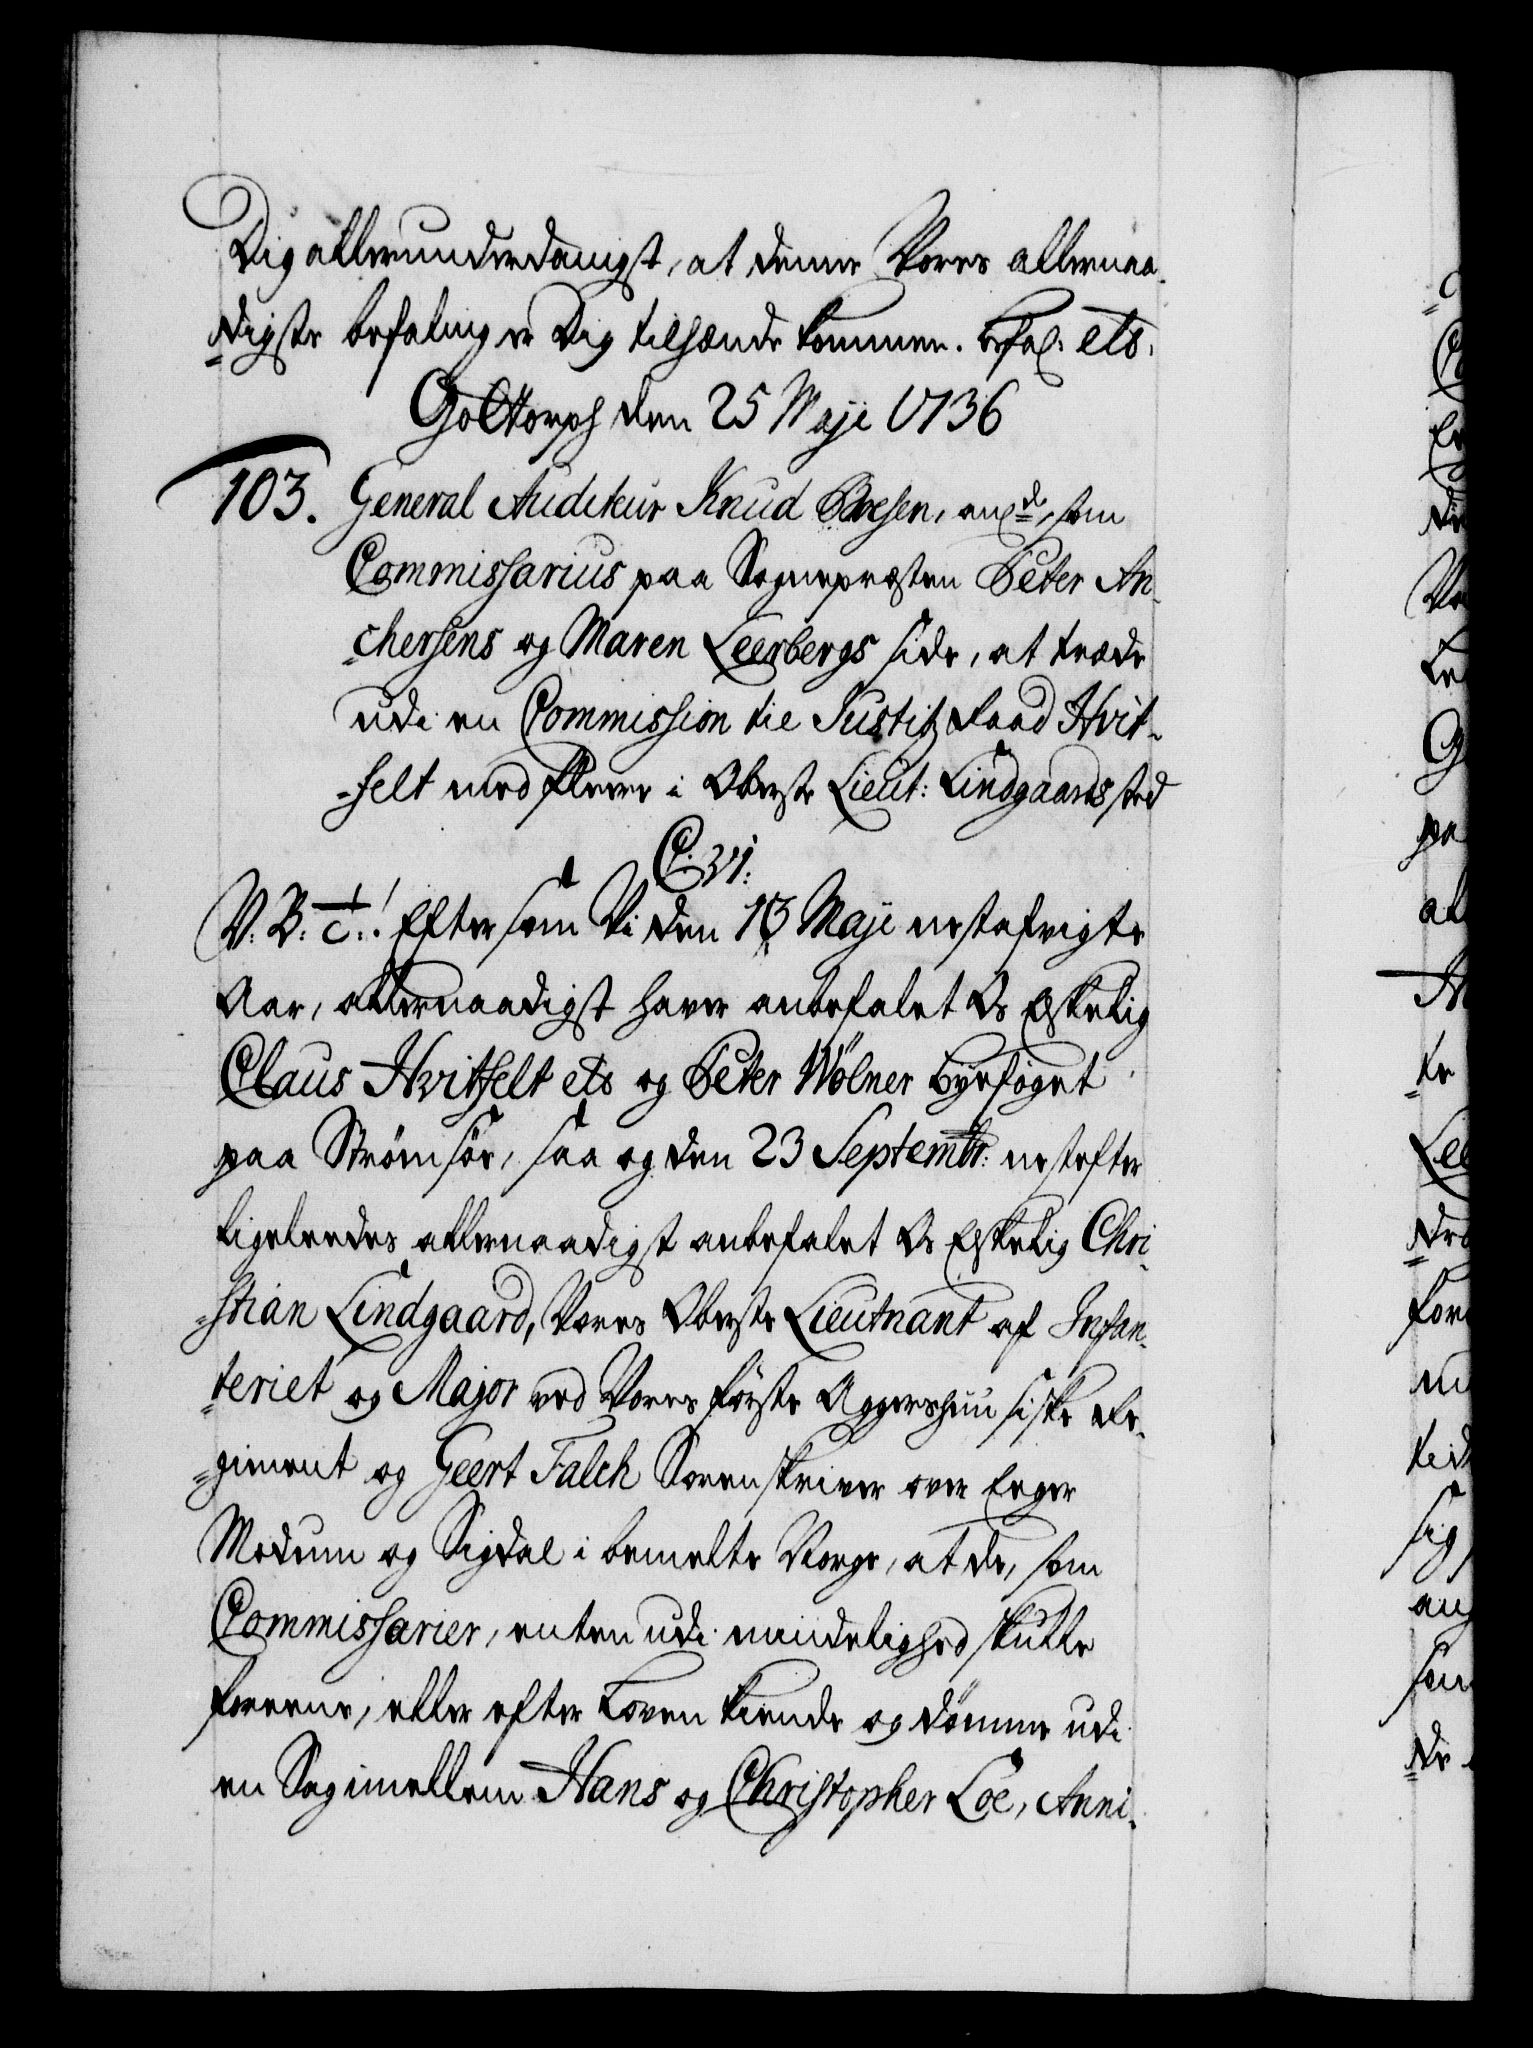 Dig allerunderdanigst, at denne Vores allernaa-
digste befaling er Dig tilhænde kommen. Befal: etc.
Gottorph den 25 Maji 1736
103. General Auditeur Knud Boesen, anl:de, som
Commissarius paa Sognepræsten Peter An-
chersens og Maren Leerbergs side, at træde
udi en Commission til Justitz Raad Hvit-
felt med flere i Oberste Lieut: Lindgaards sted
C: VI:
V. B. &c:! Eftersom Vi den 13 Maji nestafvigte
Aar, allernaadigst haver anbefalet Os Elskelig
Claus Hvitfelt etc og Peter Wölner Byefoget
paa Strömsöe, saa og den 23 Septembr: nestefter
ligeledes allernaadigst anbefalet Os Elskelig Chri-
stian Lindgaard, Vores Oberste Lieutnant af Infan-
teriet og Major ved Vores förste Aggershuusiske Re-
giment og Geert Falch Sorenskriver over Eeger
Modum og Sigdal i bemelte Norge, at de, som
Commissarier, enten udi mindelighed skulle
foreene, eller efter Loven kiende og dömme udi
en Sag imellem Hans og Christopher Loe, Anni-